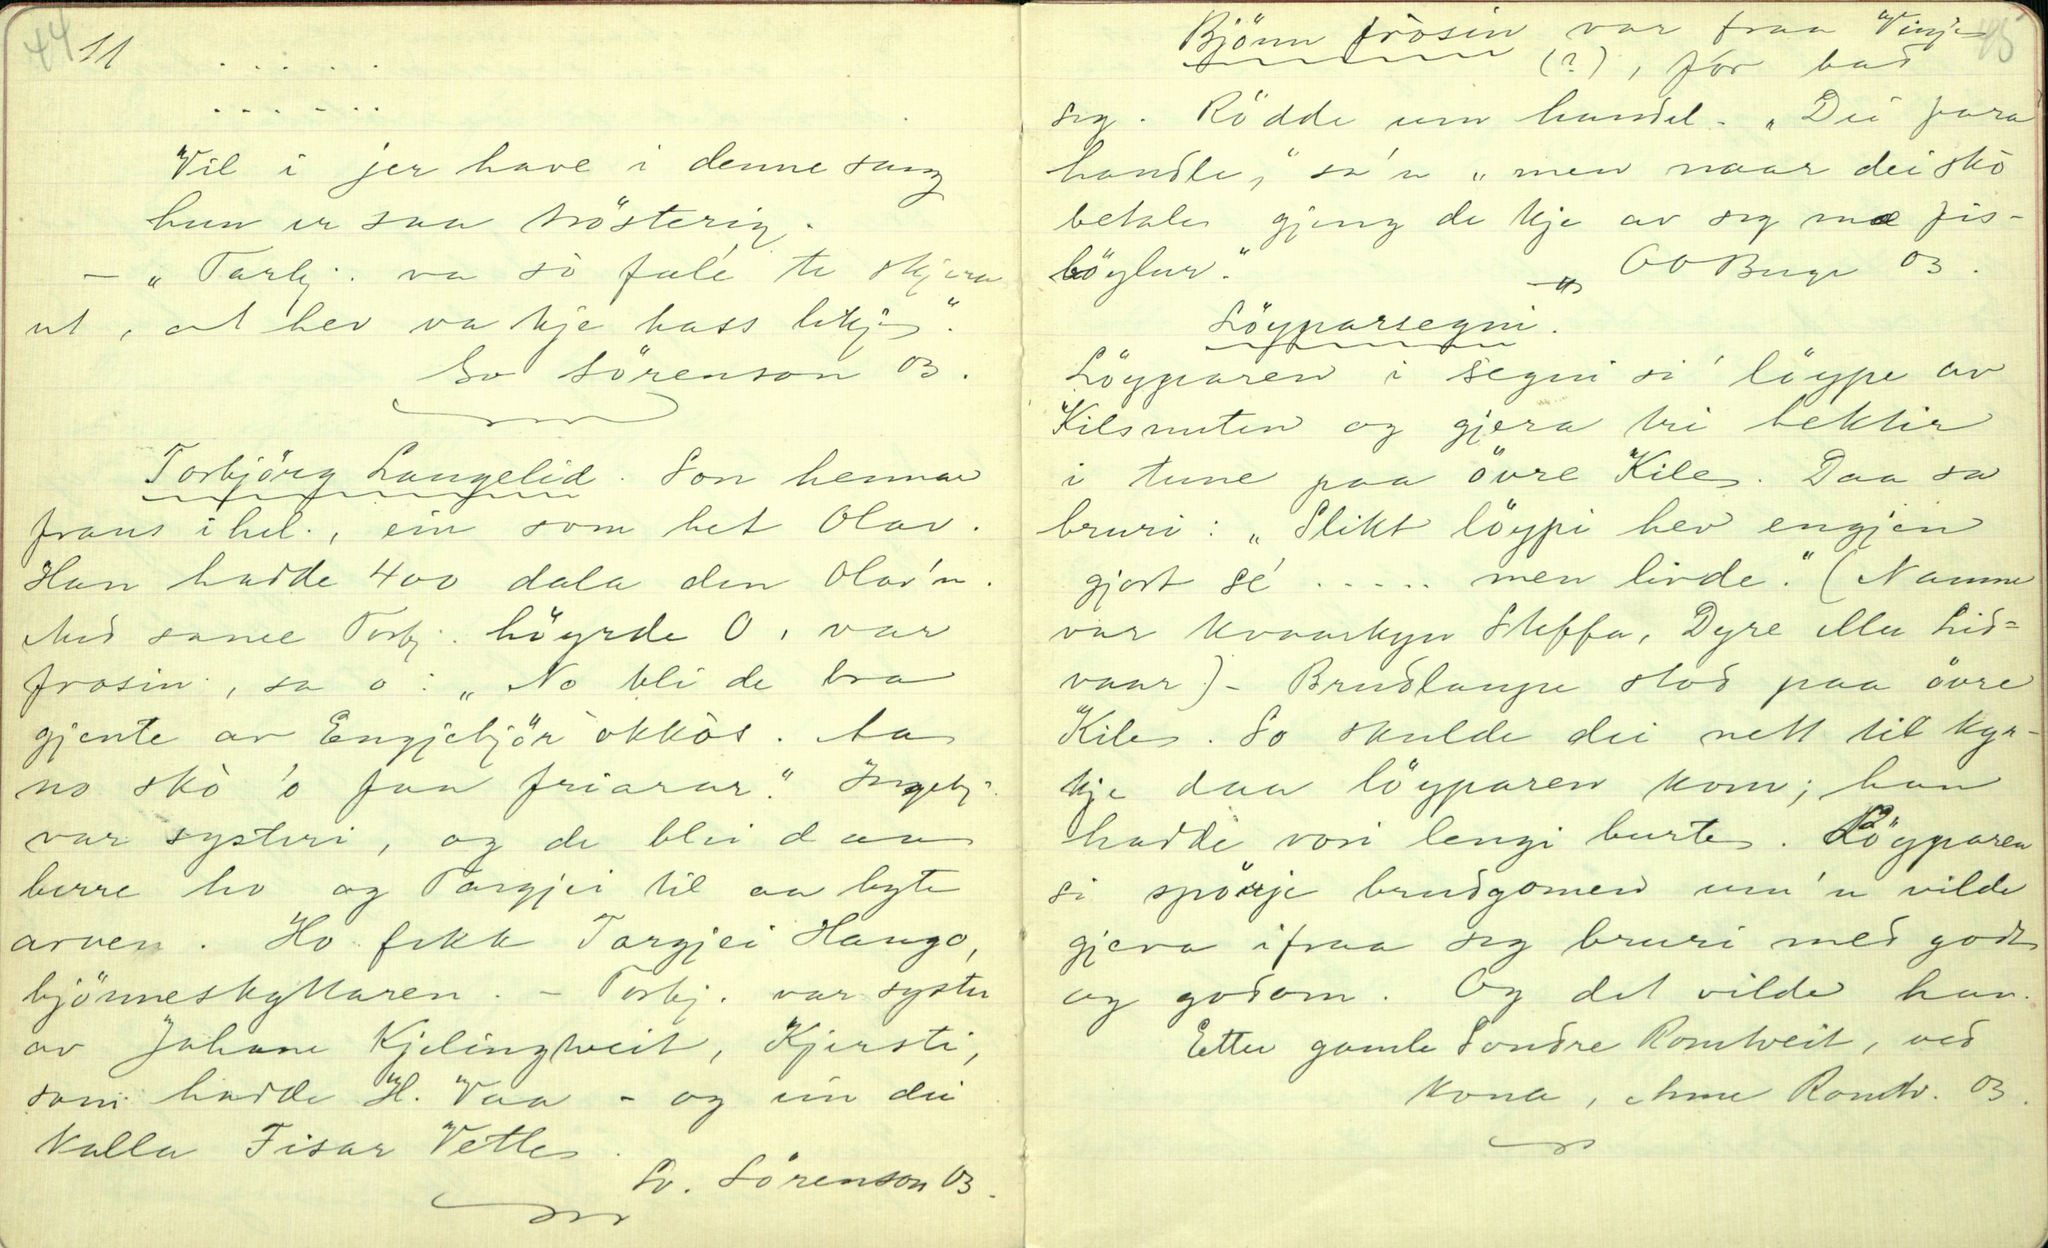 44
11
. . . . .
. . . . . .
Vil i jer have i denne sang
hun er saa trösterig.
— „Tarkj. va so fælé te skjera
ut, at hev va kje hass likje".
Sv Sörenson 03.
Torbjörg Laugelid. Son hennar
fraus ihel., ein som het Olav.
Han hadde 400 dala den Olav'n.
Med same Torbj. höyrde O, var
frosin, sa o: „No bli de bra
gjente av Engjebjör òkkòs. Aa
no skò 'o faa friarar." Ingebj.
var systeri, og de blei daa
berre ho og Targjei til aa byte
arven. Ho fekk Targjei Haugo,
bjönneskyttaren. – Torbj. var syster
av Johane Kjelingtveit, Kjersti,
som hadde H. Vaa – og ein dei
kalla Fisar Vetle.
Sv. Sörenson 03.
45
Bjönn frosin var fraa Vinje
(?), fór bad
seg. Rödde um handel. „Dei fara
handle," sa'n „men naar dei skò
betale gjeng de kje av seg mæ fis-
böylur."
OO Buge 03.
Löyparsegni.
Löyparen i segni si' löype av
Kilsnuten og gjera tri bektir
i tune paa övre Kile. Daa sa
bruri: „Slikt löypi hev engjen
gjort sé ..... men livde." (Namne
var kvaarkyn Steffa, Dyre ella Lid-
vaar) – Brudlaupe stod paa övre
Kile. So skulde dei nett til kyr-
kje daa löyparen kom; han
hadde vori lengi burte. Löyparen
si spörje brudgomen um'n vilde
gjeva ifraa seg bruri med godt
og godom. Og det vilde han.
Etter gamle Sondre Romtveit, ved
kona, Anne Romtv. 03.